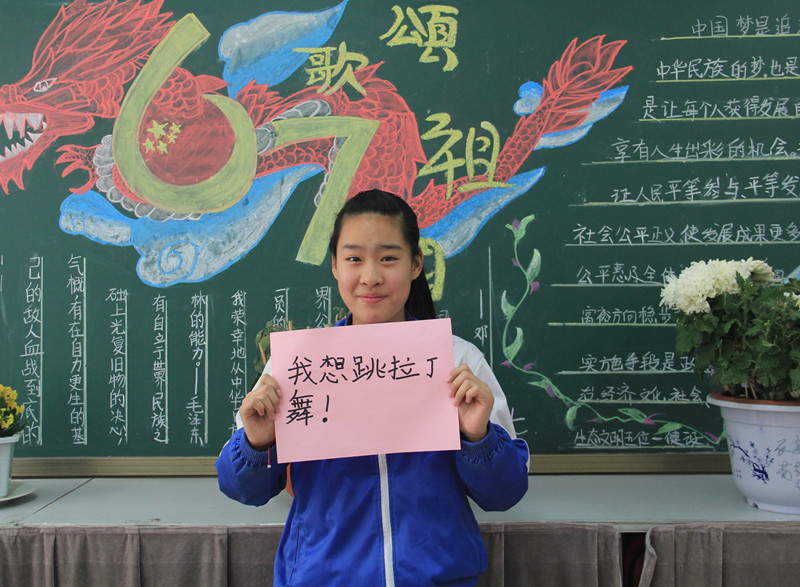 歌颂祖国
67
我想跳拉丁
舞！
中国梦是追
中华民族的梦,也是
是让每个人获得发展自
享有人生出彩的机会。
让人民平等参与、平等发
社会公平正义,使发展成果更多
公平惠及全体
富裕方向稳步
实施手段是政
治、经济、文化、社会
生态文明五位一体建设
我荣幸地从中华
林的能力。——毛泽东
有自立于世界民族之
础上光复旧物的决心,
气概,有在自力更生的基
己的敌人血战到底的